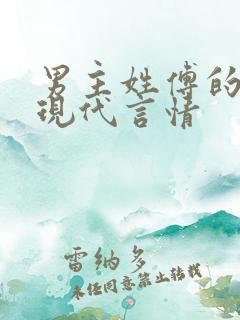 男主姓傅的
現代言情
雷纳多
未经同意禁止转载